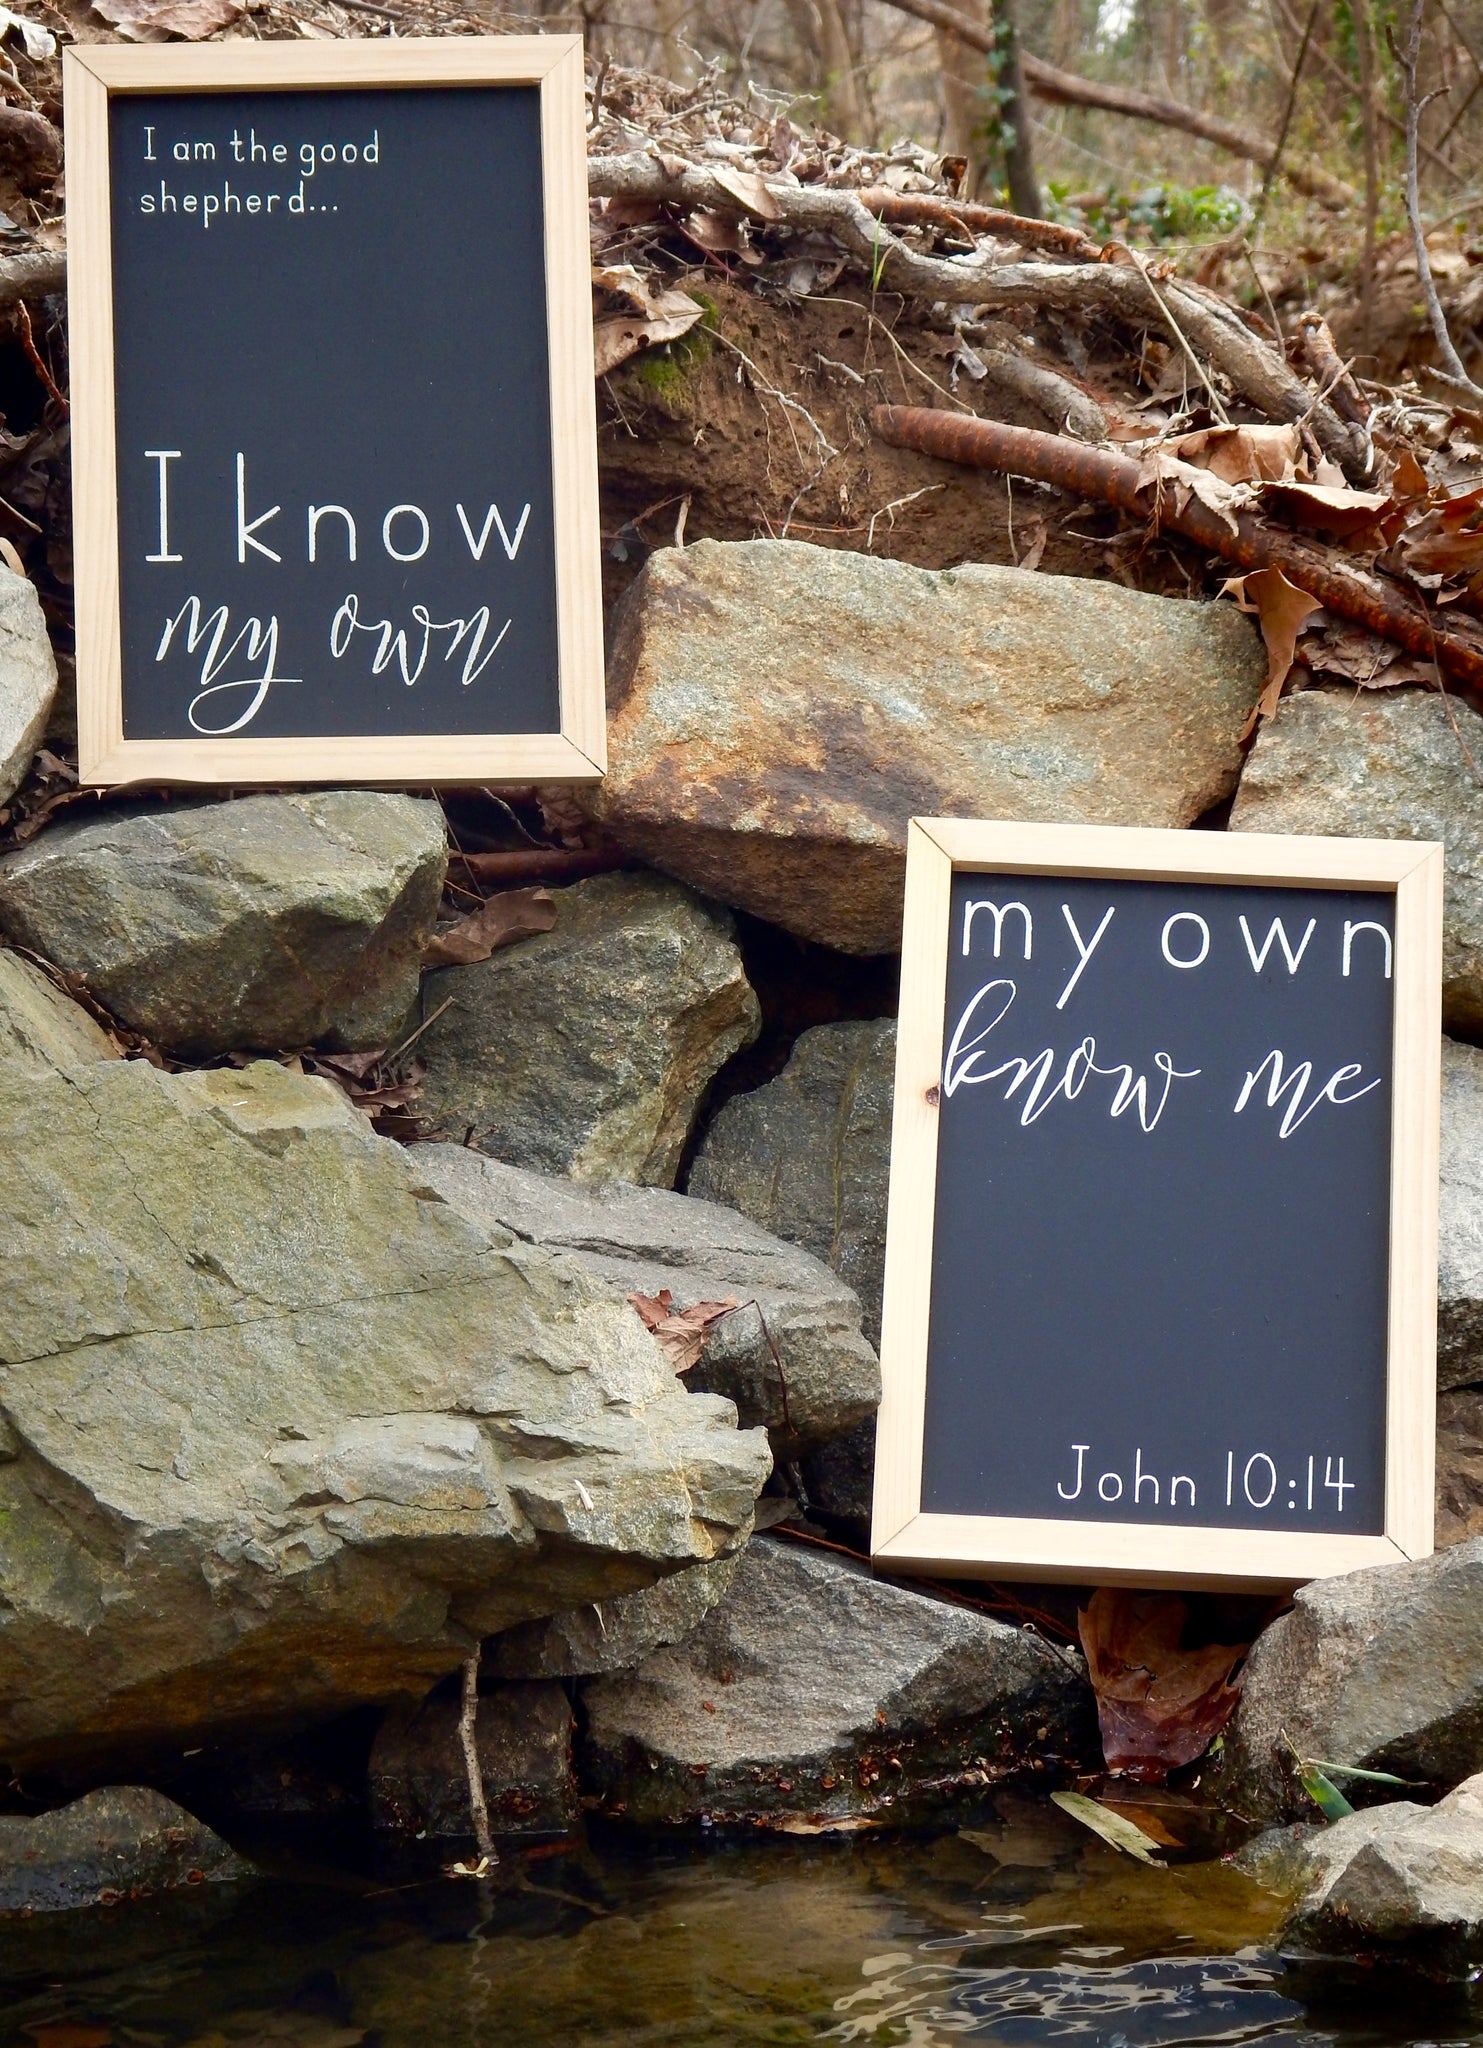 I am the good
shepherd...
I know
my own
my own
know me
John 10:14